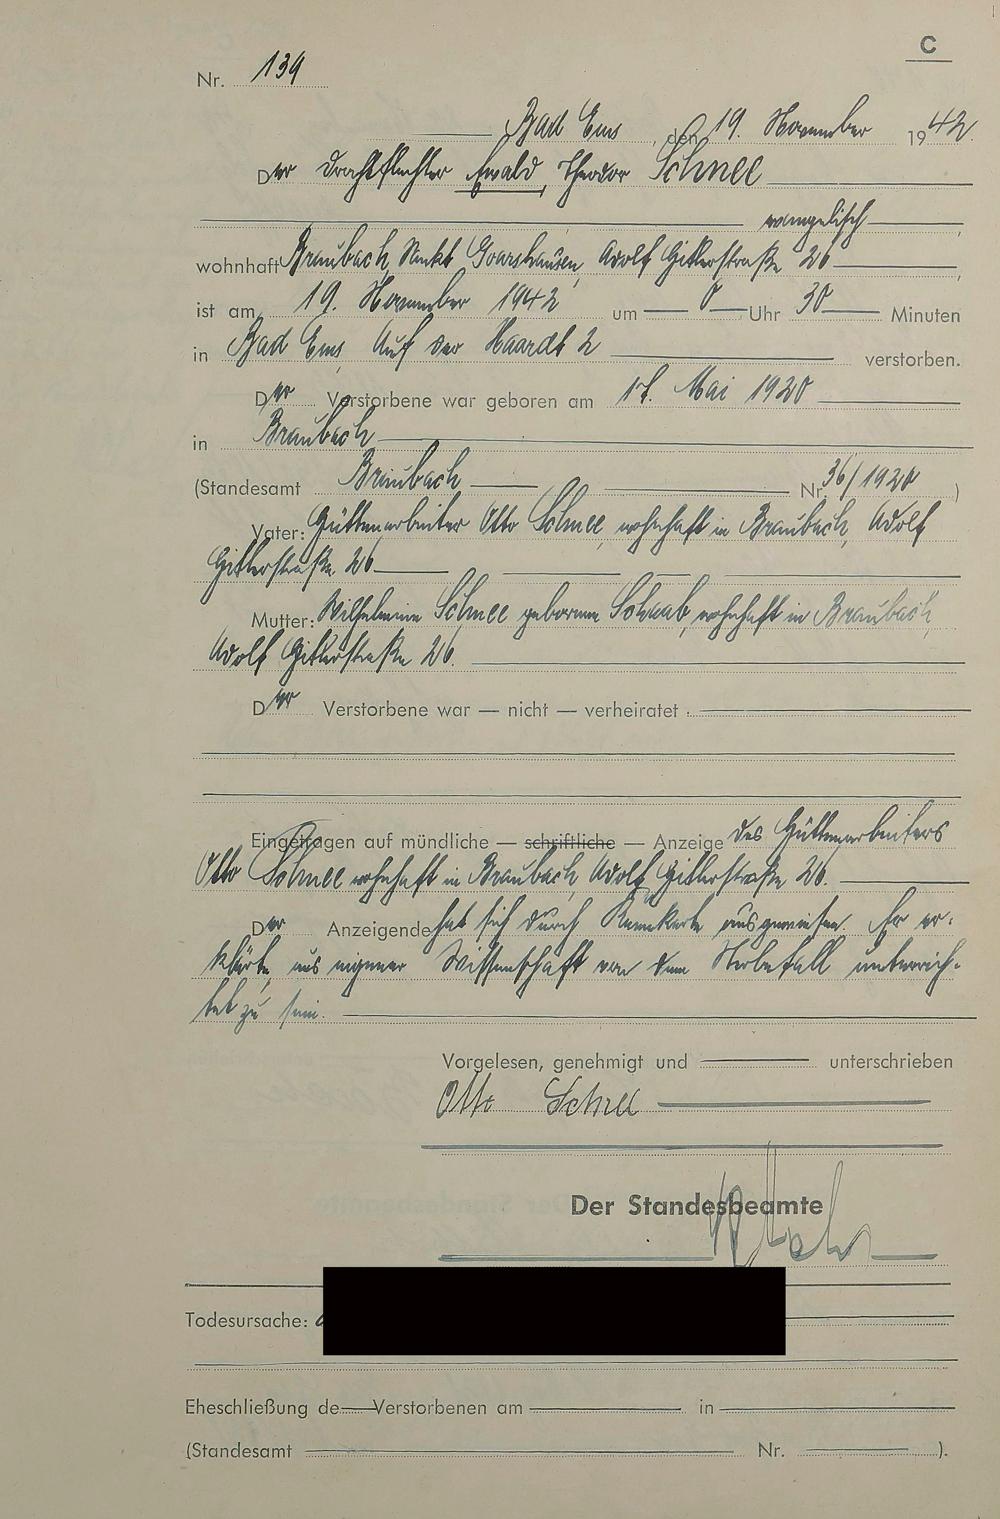 C
Nr. 139
Bad Ems, den 19. November 1942.
Der Drahtflechter Ewald, Theodor Schnee
evangelisch,
wohnhaft Braubach, Sankt Goarshausen, Adolf Hitlerstraße 26,
ist am 19. November 1942 um 0 Uhr 30 Minuten
in Bad Ems, Auf der Haardt 2 verstorben.
Der Verstorbene war geboren am 17. Mai 1920
in Braubach
(Standesamt Braubach Nr. 36/1920)
Vater: Hüttenarbeiter Otto Schnee, wohnhaft in Braubach, Adolf
Hitlerstraße 26
Mutter: Wilhelmine Schnee geborene Schwab, wohnhaft in Braubach,
Adolf Hitlerstraße 26.
Der Verstorbene war — nicht — verheiratet.
Eingetragen auf mündliche — schriftliche — Anzeige des Hüttenarbeiters
Otto Schnee wohnhaft in Braubach, Adolf Hitlerstraße 26.
Der Anzeigende hat sich durch Kennkarte ausgewiesen. Er er-
klärte, aus eigener Wissenschaft von dem Sterbefall unterrich-
tet zu sein.
Vorgelesen, genehmigt und unterschrieben
Otto Schnee
Der Standesbeamte
Todesursache:
Eheschließung de Verstorbenen am in
(Standesamt Nr. ).